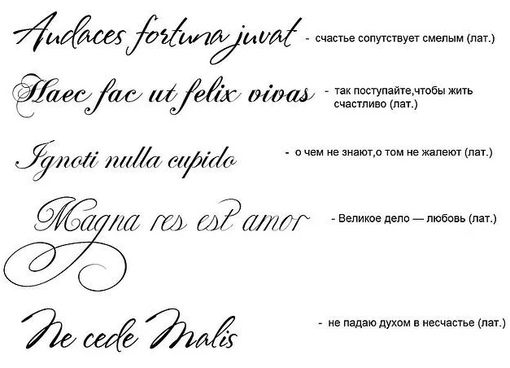 Audaces fortuna juvat - счастье сопутствует смелым (лат.)
Haec fac ut felix vivas - так поступайте,чтобы жить
счастливо (лат.)
Ignoti nulla cupido - о чем не знают,о том не жалеют (лат.)
Magna res est amor - Великое дело — любовь (лат.)
Ne cede Malis - не падаю духом в несчастье (лат.)